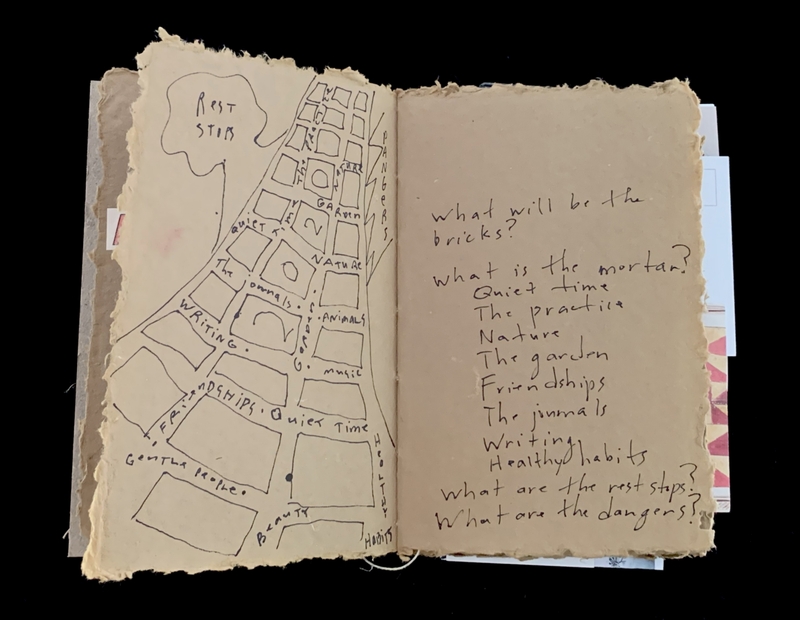 REST
STOPS
DANGERS
THE
GARDEN
QUIET
NATURE
The
journals.
ANIMALS
WRITING.
music
FRIENDSHIPS. QUIET TIME
GENTLE PEOPLE.
HEALTHY
BEAUTY
HABITS
What will be the
bricks?
What is the mortar?
Quiet time
The practice
Nature
The garden
Friendships
The journals
Writing
Healthy habits
What are the rest stops?
What are the dangers?